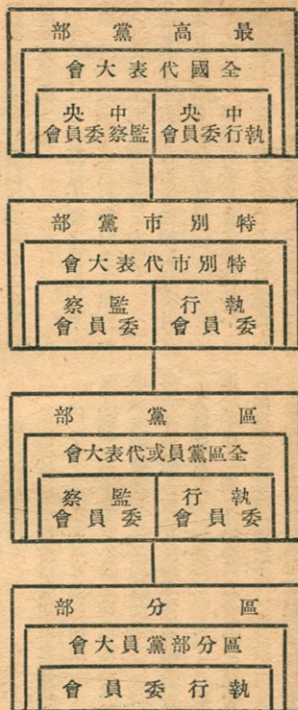 最高黨部
全國代表大會
中央執行委員會
中央監察委員會
特別市黨部
特別市代表大會
執行委員會
監察委員會
區黨部
全區黨員或代表大會
執行委員會
監察委員會
區分部
區分部黨員大會
執行委員會